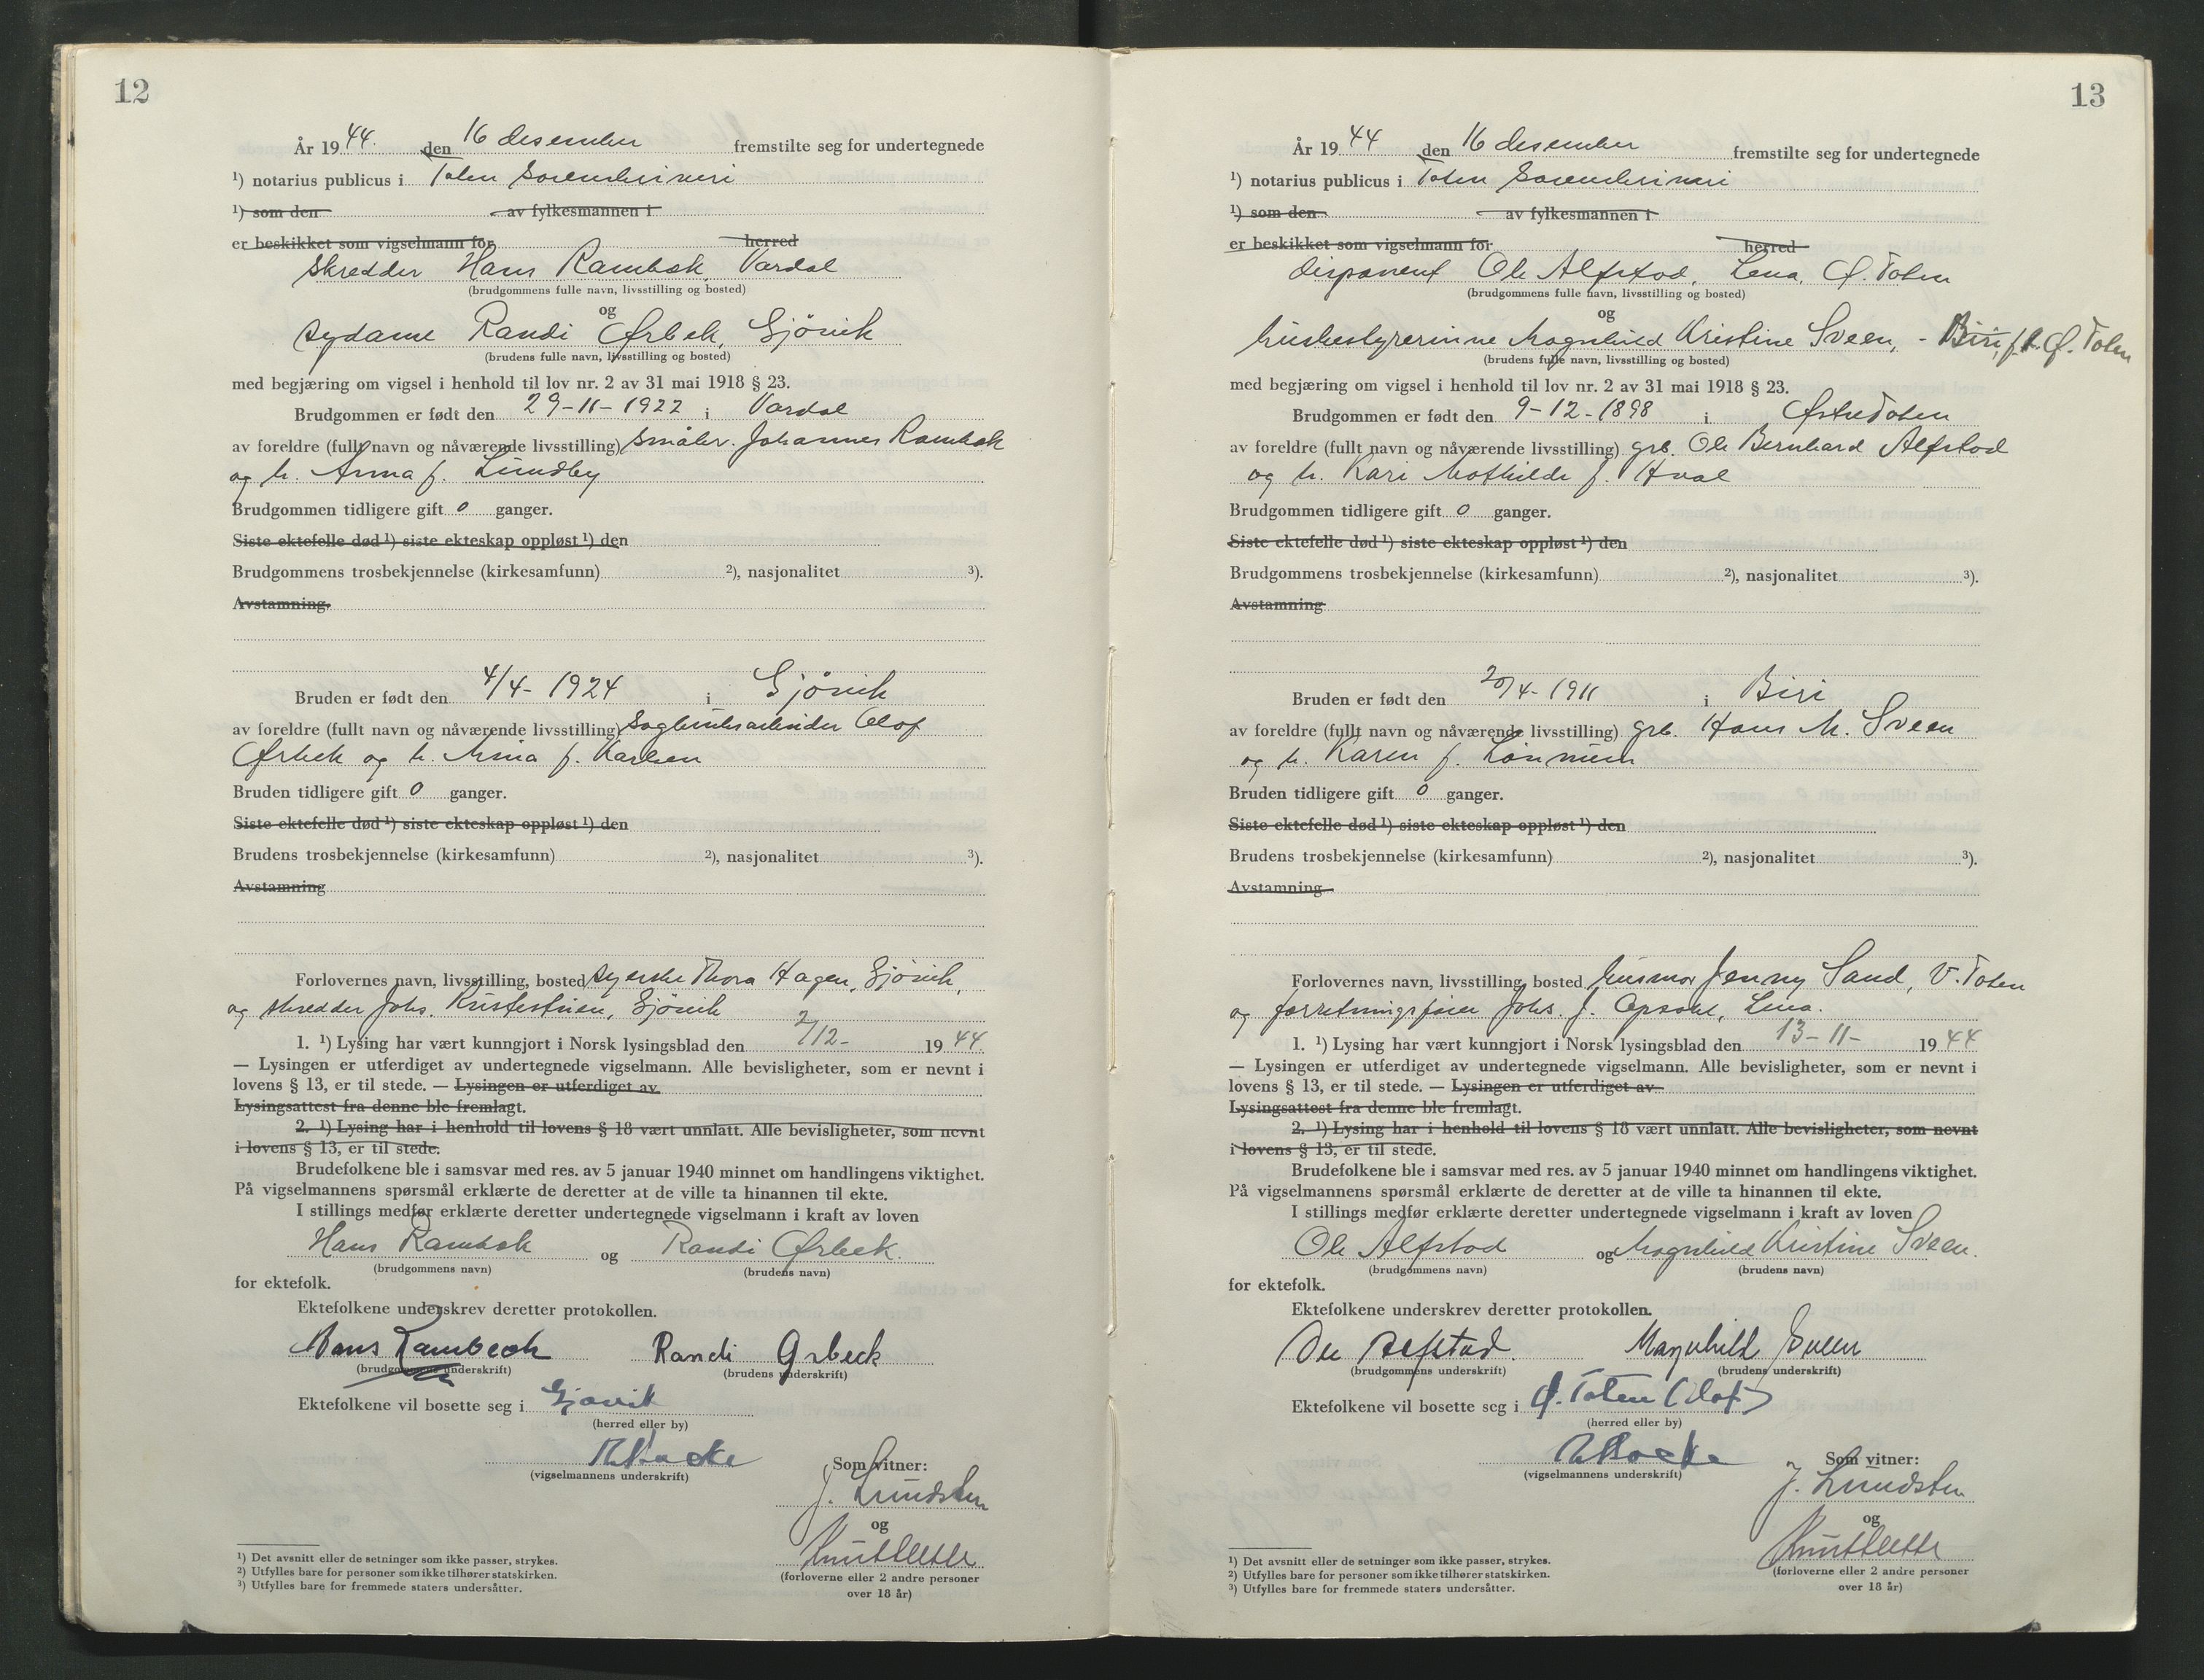 12
År 19 44. den 16 desember fremstilte seg for undertegnede
¹) notarius publicus i Toten Sorenskriveri
¹) som den av fylkesmannen i
er beskikket som vigselmann for herred
skredder Hans Rambæk, Vardal
(brudgommens fulle navn, livsstilling og bosted)
og
sydame Randi Ørbek, Gjövik
(brudens fulle navn, livsstilling og bosted)
med begjæring om vigsel i henhold til lov nr. 2 av 31 mai 1918 § 23.
Brudgommen er født den 29-11-1922 i Vardal
av foreldre (fullt navn og nåværende livsstilling) småbr. Johannes Rambæk
og h. Anna f. Lundby
Brudgommen tidligere gift 0 ganger.
Siste ektefelle død ¹) siste ekteskap oppløst ¹) den
Brudgommens trosbekjennelse (kirkesamfunn) ²), nasjonalitet ³).
Avstamning.
Bruden er født den 4/4- 1924 i Gjövik
av foreldre (fullt navn og nåværende livsstilling) sagbruksarbeider Olaf
Ørbek og h. Mina f. Karlsen
Bruden tidligere gift 0 ganger.
Siste ektefelle død ¹) siste ekteskap oppløst ¹) den
Brudens trosbekjennelse (kirkesamfunn) ²), nasjonalitet ³).
Avstamning
Forlovernes navn, livsstilling, bosted syerske Thora Hagen, Gjövik,
og skredder Johs. Gjövik
1. ¹) Lysing har vært kunngjort i Norsk lysingsblad den 2/12- 19 44
— Lysingen er utferdiget av undertegnede vigselmann. Alle bevisligheter, som er nevnt i
lovens § 13, er til stede. — Lysingen er utferdiget av
Lysingsattest fra denne ble fremlagt.
2. ¹) Lysing har i henhold til lovens § 18 vært unnlatt. Alle bevisligheter, som nevnt
i lovens § 13, er til stede.
Brudefolkene ble i samsvar med res. av 5 januar 1940 minnet om handlingens viktighet.
På vigselmannens spørsmål erklærte de deretter at de ville ta hinannen til ekte.
I stillings medfør erklærte deretter undertegnede vigselmann i kraft av loven
Hans Rambæk og Randi Ørbek.
(brudgommens navn) (brudens navn)
for ektefolk.
Ektefolkene underskrev deretter protokollen.
Hans Rambæk Randi Ørbeck
(brudgommens underskrift) (brudens underskrift)
Ektefolkene vil bosette seg i Gjøvik
(herred eller by)
(vigselmannens underskrift)
Som vitner:
J. Lundsten
og
(forloverne eller 2 andre personer
over 18 år)
¹) Det avsnitt eller de setninger som ikke passer, strykes.
²) Utfylles bare for personer som ikke tilhører statskirken.
³) Utfylles bare for fremmede staters undersåtter.
13
År 19 44 den 16 desember fremstilte seg for undertegnede
¹) notarius publicus i Toten Sorenskriveri
¹) som den av fylkesmannen i
er beskikket som vigselmann for herred
disponent Ole Alfstad, Lena, Ø. Toten
(brudgommens fulle navn, livsstilling og bosted)
og
husbestyrerinne Magnhild Kristine Sveen, - Biri, f.t. Ø. Toten
(brudens fulle navn, livsstilling og bosted)
med begjæring om vigsel i henhold til lov nr. 2 av 31 mai 1918 § 23.
Brudgommen er født den 9-12-1898 i Østre Toten
av foreldre (fullt navn og nåværende livsstilling) grb. Ole Bernhard Alfstad
og h. Kari Mathilde f. Hval
Brudgommen tidligere gift 0 ganger.
Siste ektefelle død ¹) siste ekteskap oppløst ¹) den
Brudgommens trosbekjennelse (kirkesamfunn) ²), nasjonalitet ³).
Avstamning
Bruden er født den 20/4-1911 i Biri
av foreldre (fullt navn og nåværende livsstilling) grb. Hans M. Sveen
og h. Karen f. Lönnum
Bruden tidligere gift 0 ganger.
Siste ektefelle død ¹) siste ekteskap oppløst ¹) den
Brudens trosbekjennelse (kirkesamfunn) ²), nasjonalitet ³).
Avstamning
Forlovernes navn, livsstilling, bosted husmor Jenny Sand, V. Toten
og forretningsfører Johs. J. Opsahl, Lena.
1. ¹) Lysing har vært kunngjort i Norsk lysingsblad den 13-11- 19 44
— Lysingen er utferdiget av undertegnede vigselmann. Alle bevisligheter, som er nevnt i
lovens § 13, er til stede. — Lysingen er utferdiget av
Lysingsattest fra denne ble fremlagt.
2. ¹) Lysing har i henhold til lovens § 18 vært unnlatt. Alle bevisligheter, som nevnt
i lovens § 13, er til stede.
Brudefolkene ble i samsvar med res. av 5 januar 1940 minnet om handlingens viktighet.
På vigselmannens spørsmål erklærte de deretter at de ville ta hinannen til ekte.
I stillings medfør erklærte deretter undertegnede vigselmann i kraft av loven
Ole Alfstad og Magnhild Kristine Sveen.
(brudgommens navn) (brudens navn)
for ektefolk.
Ektefolkene underskrev deretter protokollen.
Ole Alfstad. Magnhild Sveen
(brudgommens underskrift) (brudens underskrift)
Ektefolkene vil bosette seg i Ø. Toten
(herred eller by)
(vigselmannens underskrift)
Som vitner:
J. Lundsten
og
(forloverne eller 2 andre personer
over 18 år)
¹) Det avsnitt eller de setninger som ikke passer, strykes.
²) Utfylles bare for personer som ikke tilhører statskirken.
³) Utfylles bare for fremmede staters undersåtter.